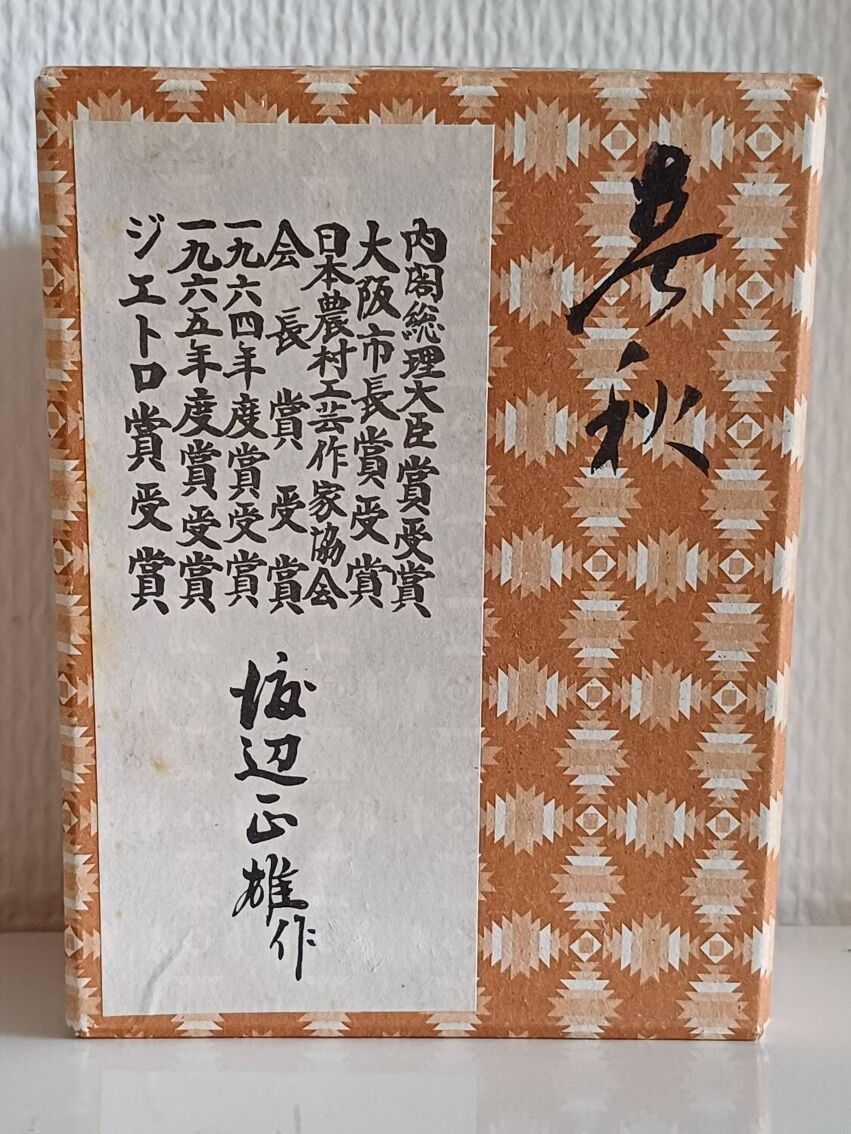 春秋
内閣総理大臣賞受賞
大阪市長賞受賞
日本農村工芸作家協会
会長賞受賞
一九六四年度賞受賞
一九六五年度賞受賞
ジエトロ賞受賞
渡辺正雄作